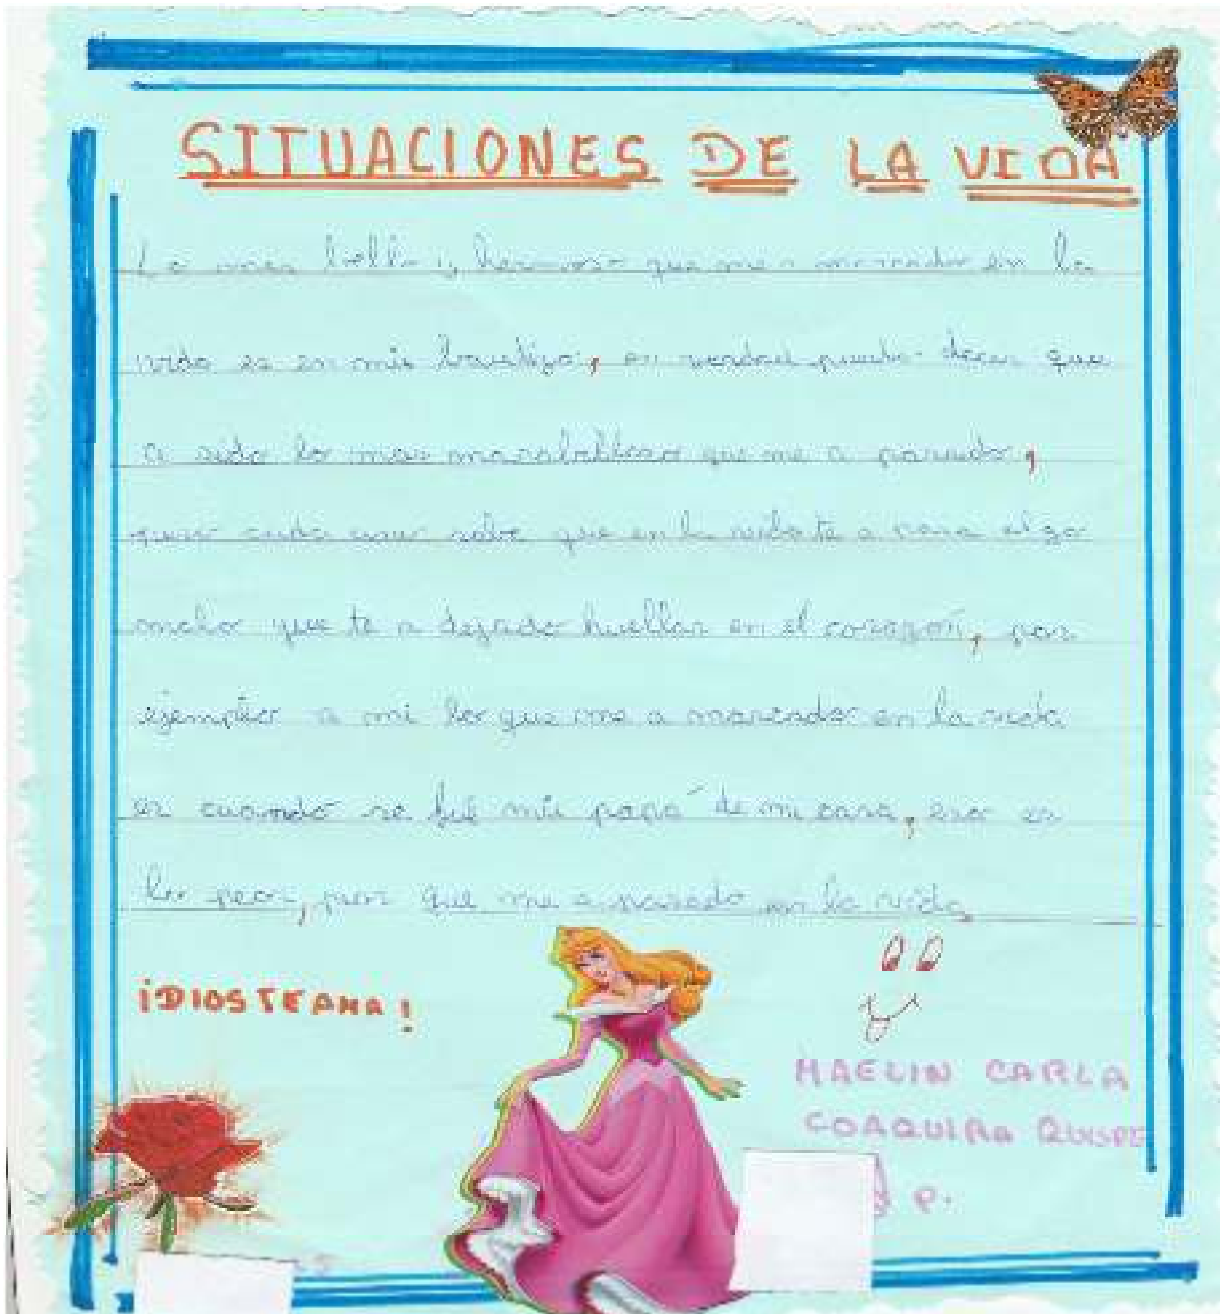 SITUACIONES DE LA VIDA
Lo mas bello y hermoso que me a marcado en la
vida es en mis bautizo, en verdad puedo decir que
a sido lo mas marabilloso que me a pasado,
pero cada uno sabe que en la vida te a pasa algo
malo que te a dejado huellas en el corazón, por
ejemplo a mi lo que me a marcado en la vida
es cuando se fué mi papá de mi casa, eso es
lo peor, por que me a pasado en la vida,
¡DIOS TE AMA!
MAELIN CARLA
COAQUIRA QUISPE
P.